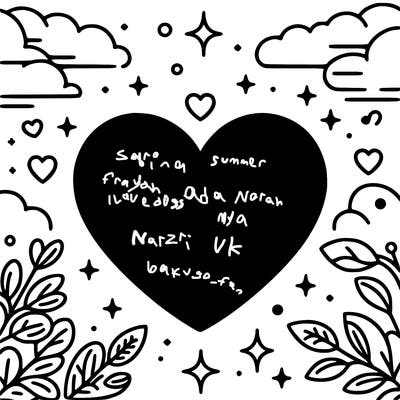 Sarina summer
frayah
ilovedogs Ada Norah
Mya
Narzri Vk
bakugo_fan